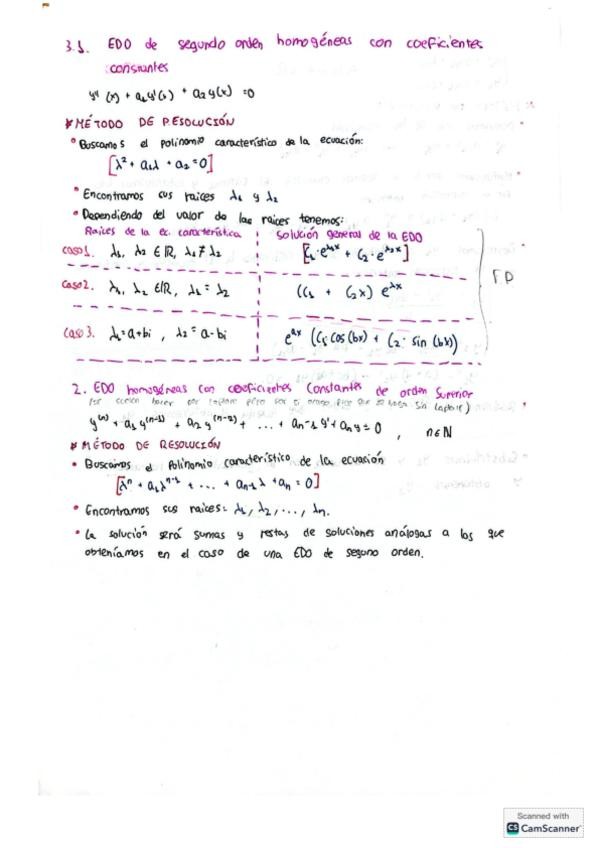 3.1. EDO de segundo orden homogéneas con coeficientes
constantes
y''(x) + a₁y'(x) + a₂y(x) = 0
* MÉTODO DE RESOLUCIÓN
• Buscamos el polinomio característico de la ecuación:
[λ² + a₁λ + a₂ = 0]
• Encontramos sus raices λ₁ y λ₂
• Dependiendo del valor de las raices tenemos:
Raíces de la ec. característica | Solución general de la EDO
Caso 1. λ₁, λ₂ ∈ ℝ, λ₁ ≠ λ₂ [C₁·e^λ₁x + C₂·e^λ₂x]
Caso 2. λ₁, λ₂ ∈ ℝ, λ₁ = λ₂ (C₁ + C₂x) e^λx
Caso 3. λ₁ = a+bi, λ₂ = a-bi e^ax (C₁ cos(bx) + C₂· sin(bx))
2. EDO homogéneas con coeficientes constantes de orden superior
y⁽ⁿ⁾ + a₁y⁽ⁿ⁻¹⁾ + a₂y⁽ⁿ⁻²⁾ + ... + aₙ₋₁y' + aₙy = 0 , n∈N
* MÉTODO DE RESOLUCIÓN
• Buscamos el polinomio característico de la ecuación
[λⁿ + a₁λⁿ⁻¹ + ... + aₙ₋₁λ + aₙ = 0]
• Encontramos sus raices: λ₁, λ₂, ..., λₙ.
• La solución será sumas y restas de soluciones análogas a los que
obteníamos en el caso de una EDO de seguno orden.
Scanned with
CS CamScanner